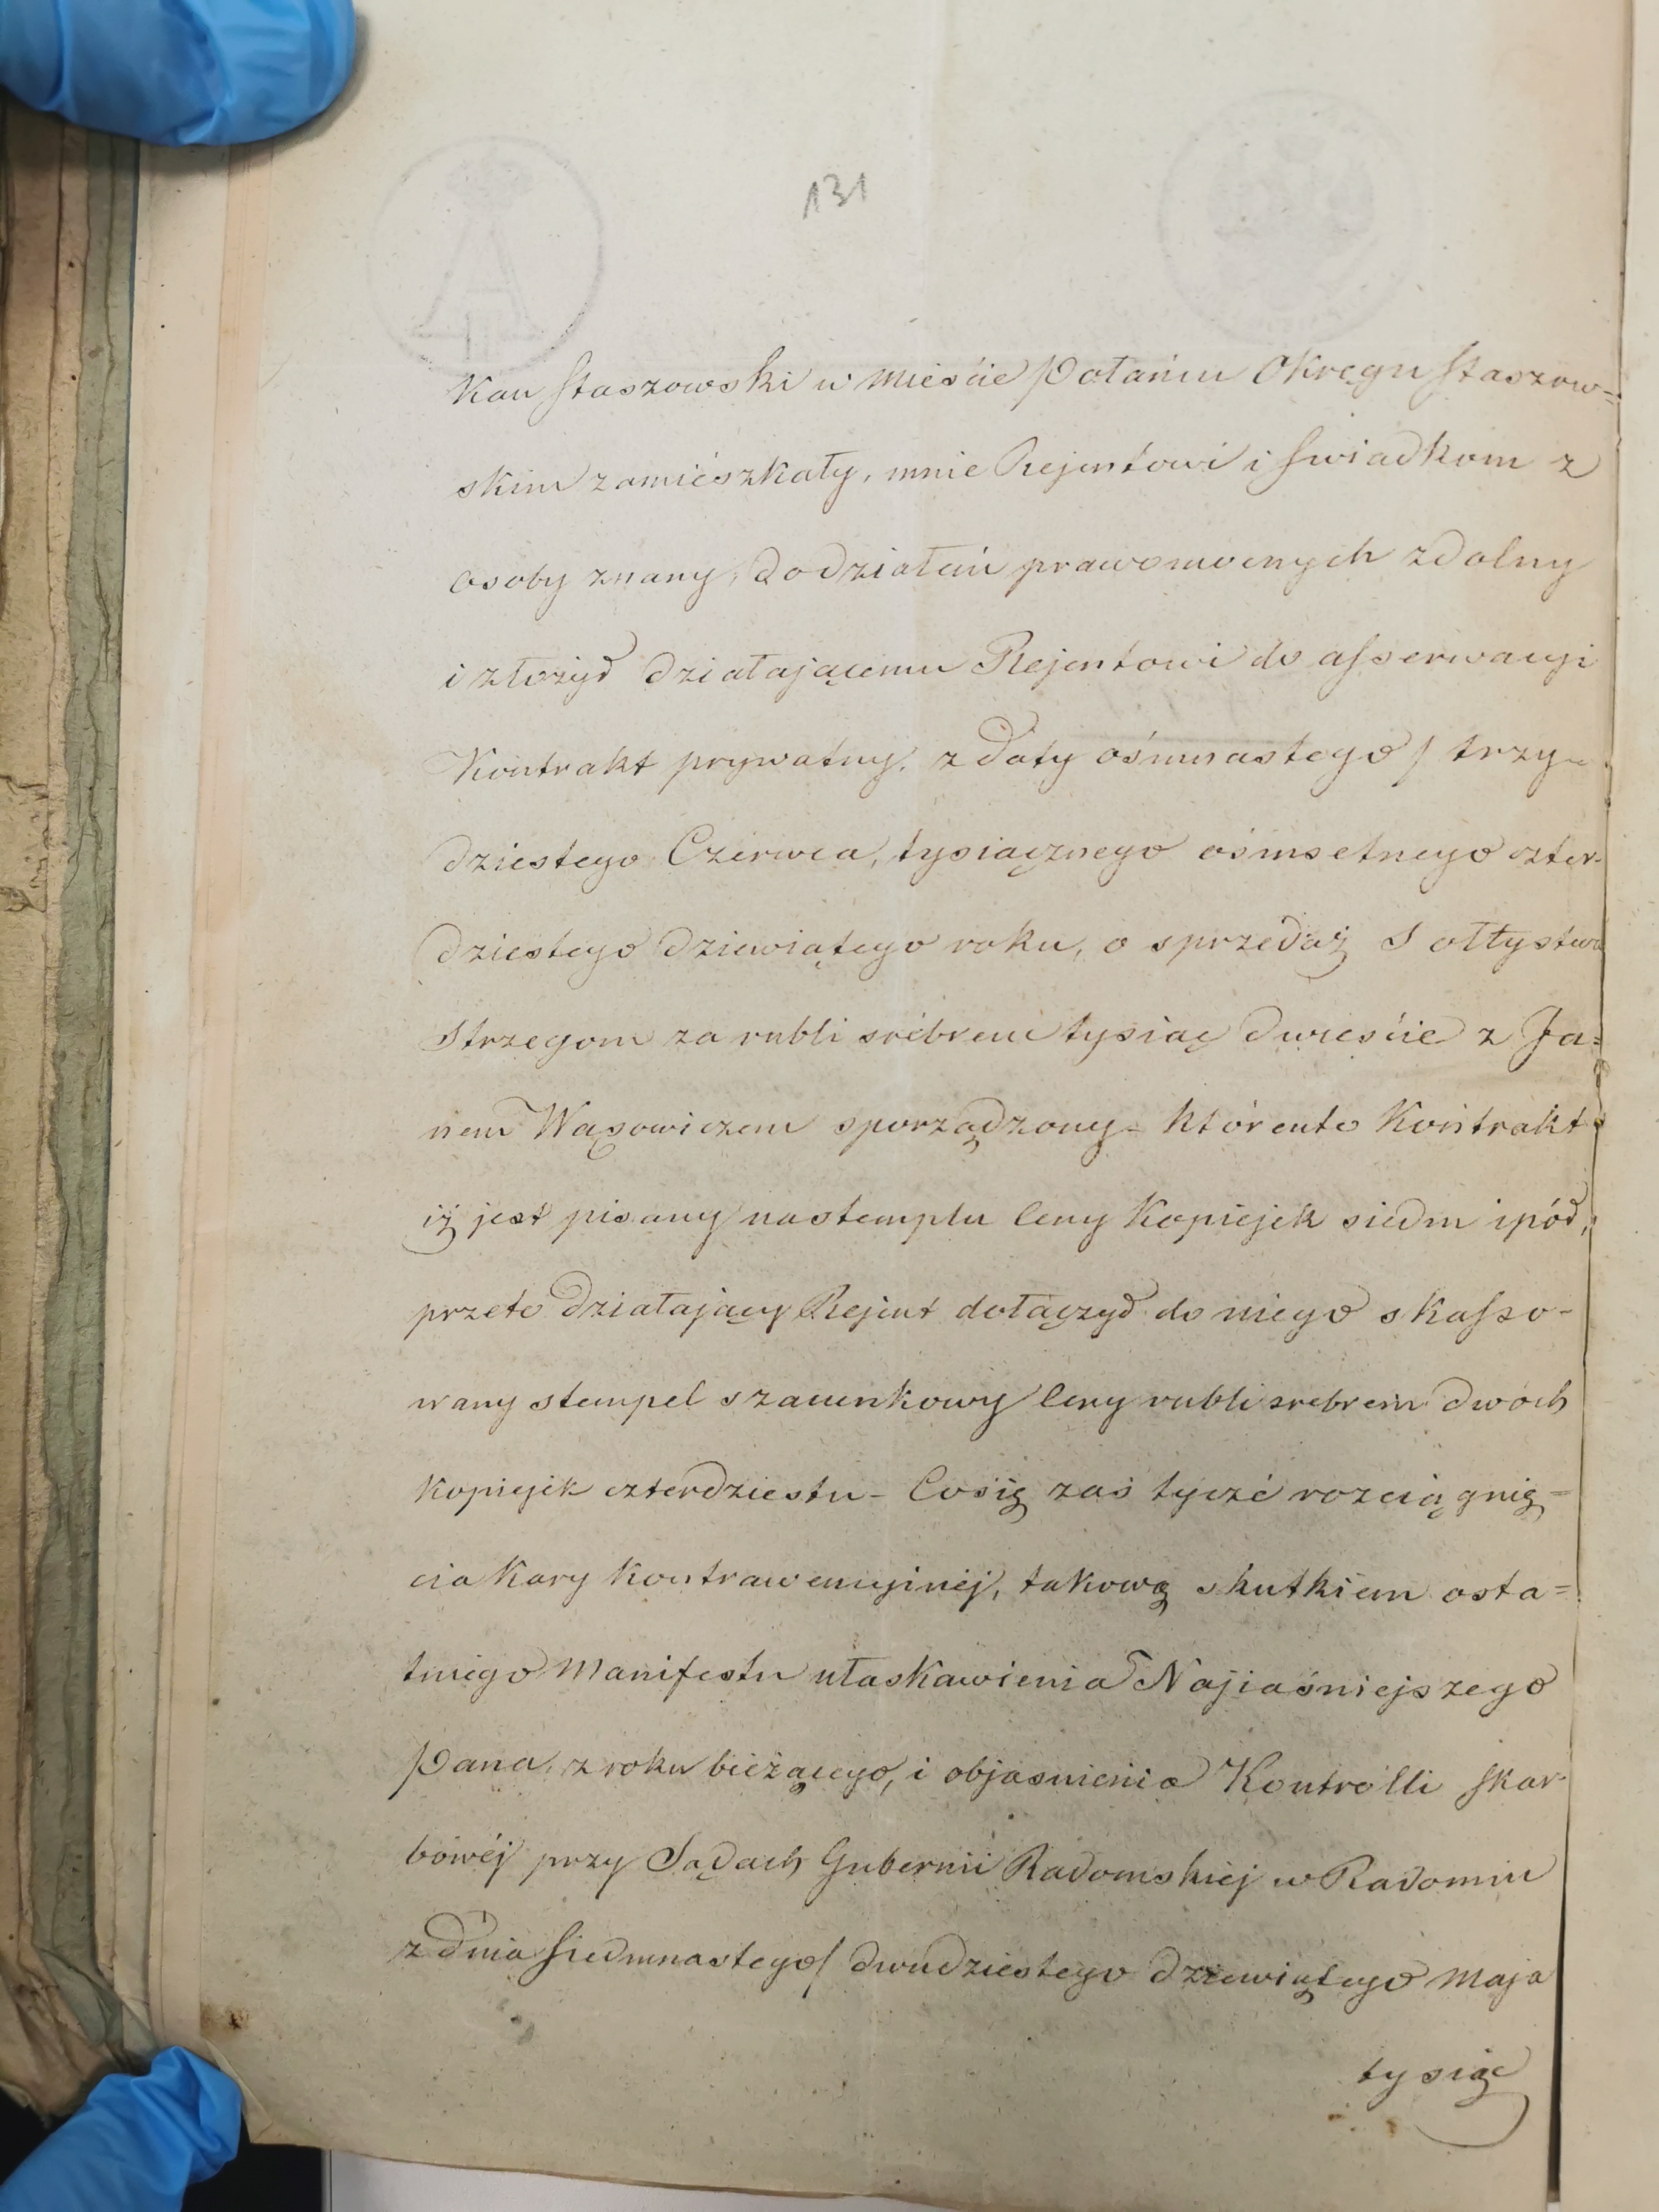 131
Kan Staszowski w Mieście Połańcu Okręgu Staszow=
skim zamieszkały, mnie Rejentowi i Swiadkom z
osoby znany, do działań prawomocnych zdolny
i złożył działającemu Rejentowi do asserwacyi
Kontrakt prywatny, z daty ośmnastego / trzy-
dziestego Czerwca, tysiącznego ośmsetnego czter-
dziestego dziewiątego roku, o sprzedaż Sołtystwa
Strzegom za rubli srébrem tysiąc dwieście z Ja=
nem Wąsowiczem sporządzony – któren to Kontrakt
iż jest pisany na stemplu Ceny Kopiejek siedm i pół,
przeto działający Rejent dołączył do niego skasso-
wany stempel szacunkowy Ceny rubli srebrem dwóch
Kopiejek czterdziestu – Co się zaś tyczé rozciągnię=
cia Kary Kontrawencyjnéj, takową skutkiem osta=
tniego Manifestu ułaskawienia Najiaśniejszego
Pana, z roku bieżącego, i objasnienia Kontrolli Skar-
bowéj przy Sądach Gubernii Radomskiej w Radomiu
z dnia Siedmnastego / dwudziestego dziewiątego Maja
tysiąc